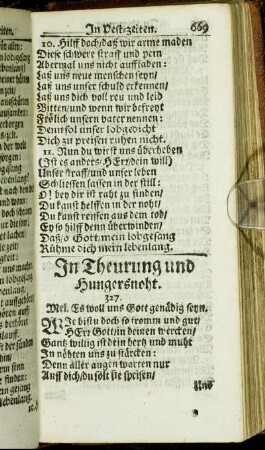 In Pest-zeiten. 669
10. Hilff doch/daß wir arme maden
Diese schwere straff und pein
Abermal uns nicht auffladen:
Laß uns neue menschen seyn/
Laß uns unser schuld erkennen/
Laß uns dich voll reu und leid
Bitten/und wenn wir befreyt
Frölich unsern vater nennen:
Denn sol unser lobgedicht
Dich zu preisen ruhen nicht.
11. Nun du wirst uns überheben
(Ist es anders/HErr/dein will)
Unser straff/und unser leben
Schliessen lassen in der still:
O! bey dir ist raht zu finden/
Du kanst helffen in der noht/
Du kanst reissen aus dem tod/
Ey so hilff denn überwinden/
Daß/o Gott/mein lobgesang
Rühme dich mein lebenlang.
In Theurung und
Hungersnoht.
327.
Mel. Es woll uns Gott genädig seyn.
WIe bistu doch so fromm und gut/
HErr Gott/in deinen wercken/
Gantz willig ist dein hertz und muht
In nöhten uns zu stärcken:
Denn aller augen warten nur
Auff dich/du solt sie speisen/
Und